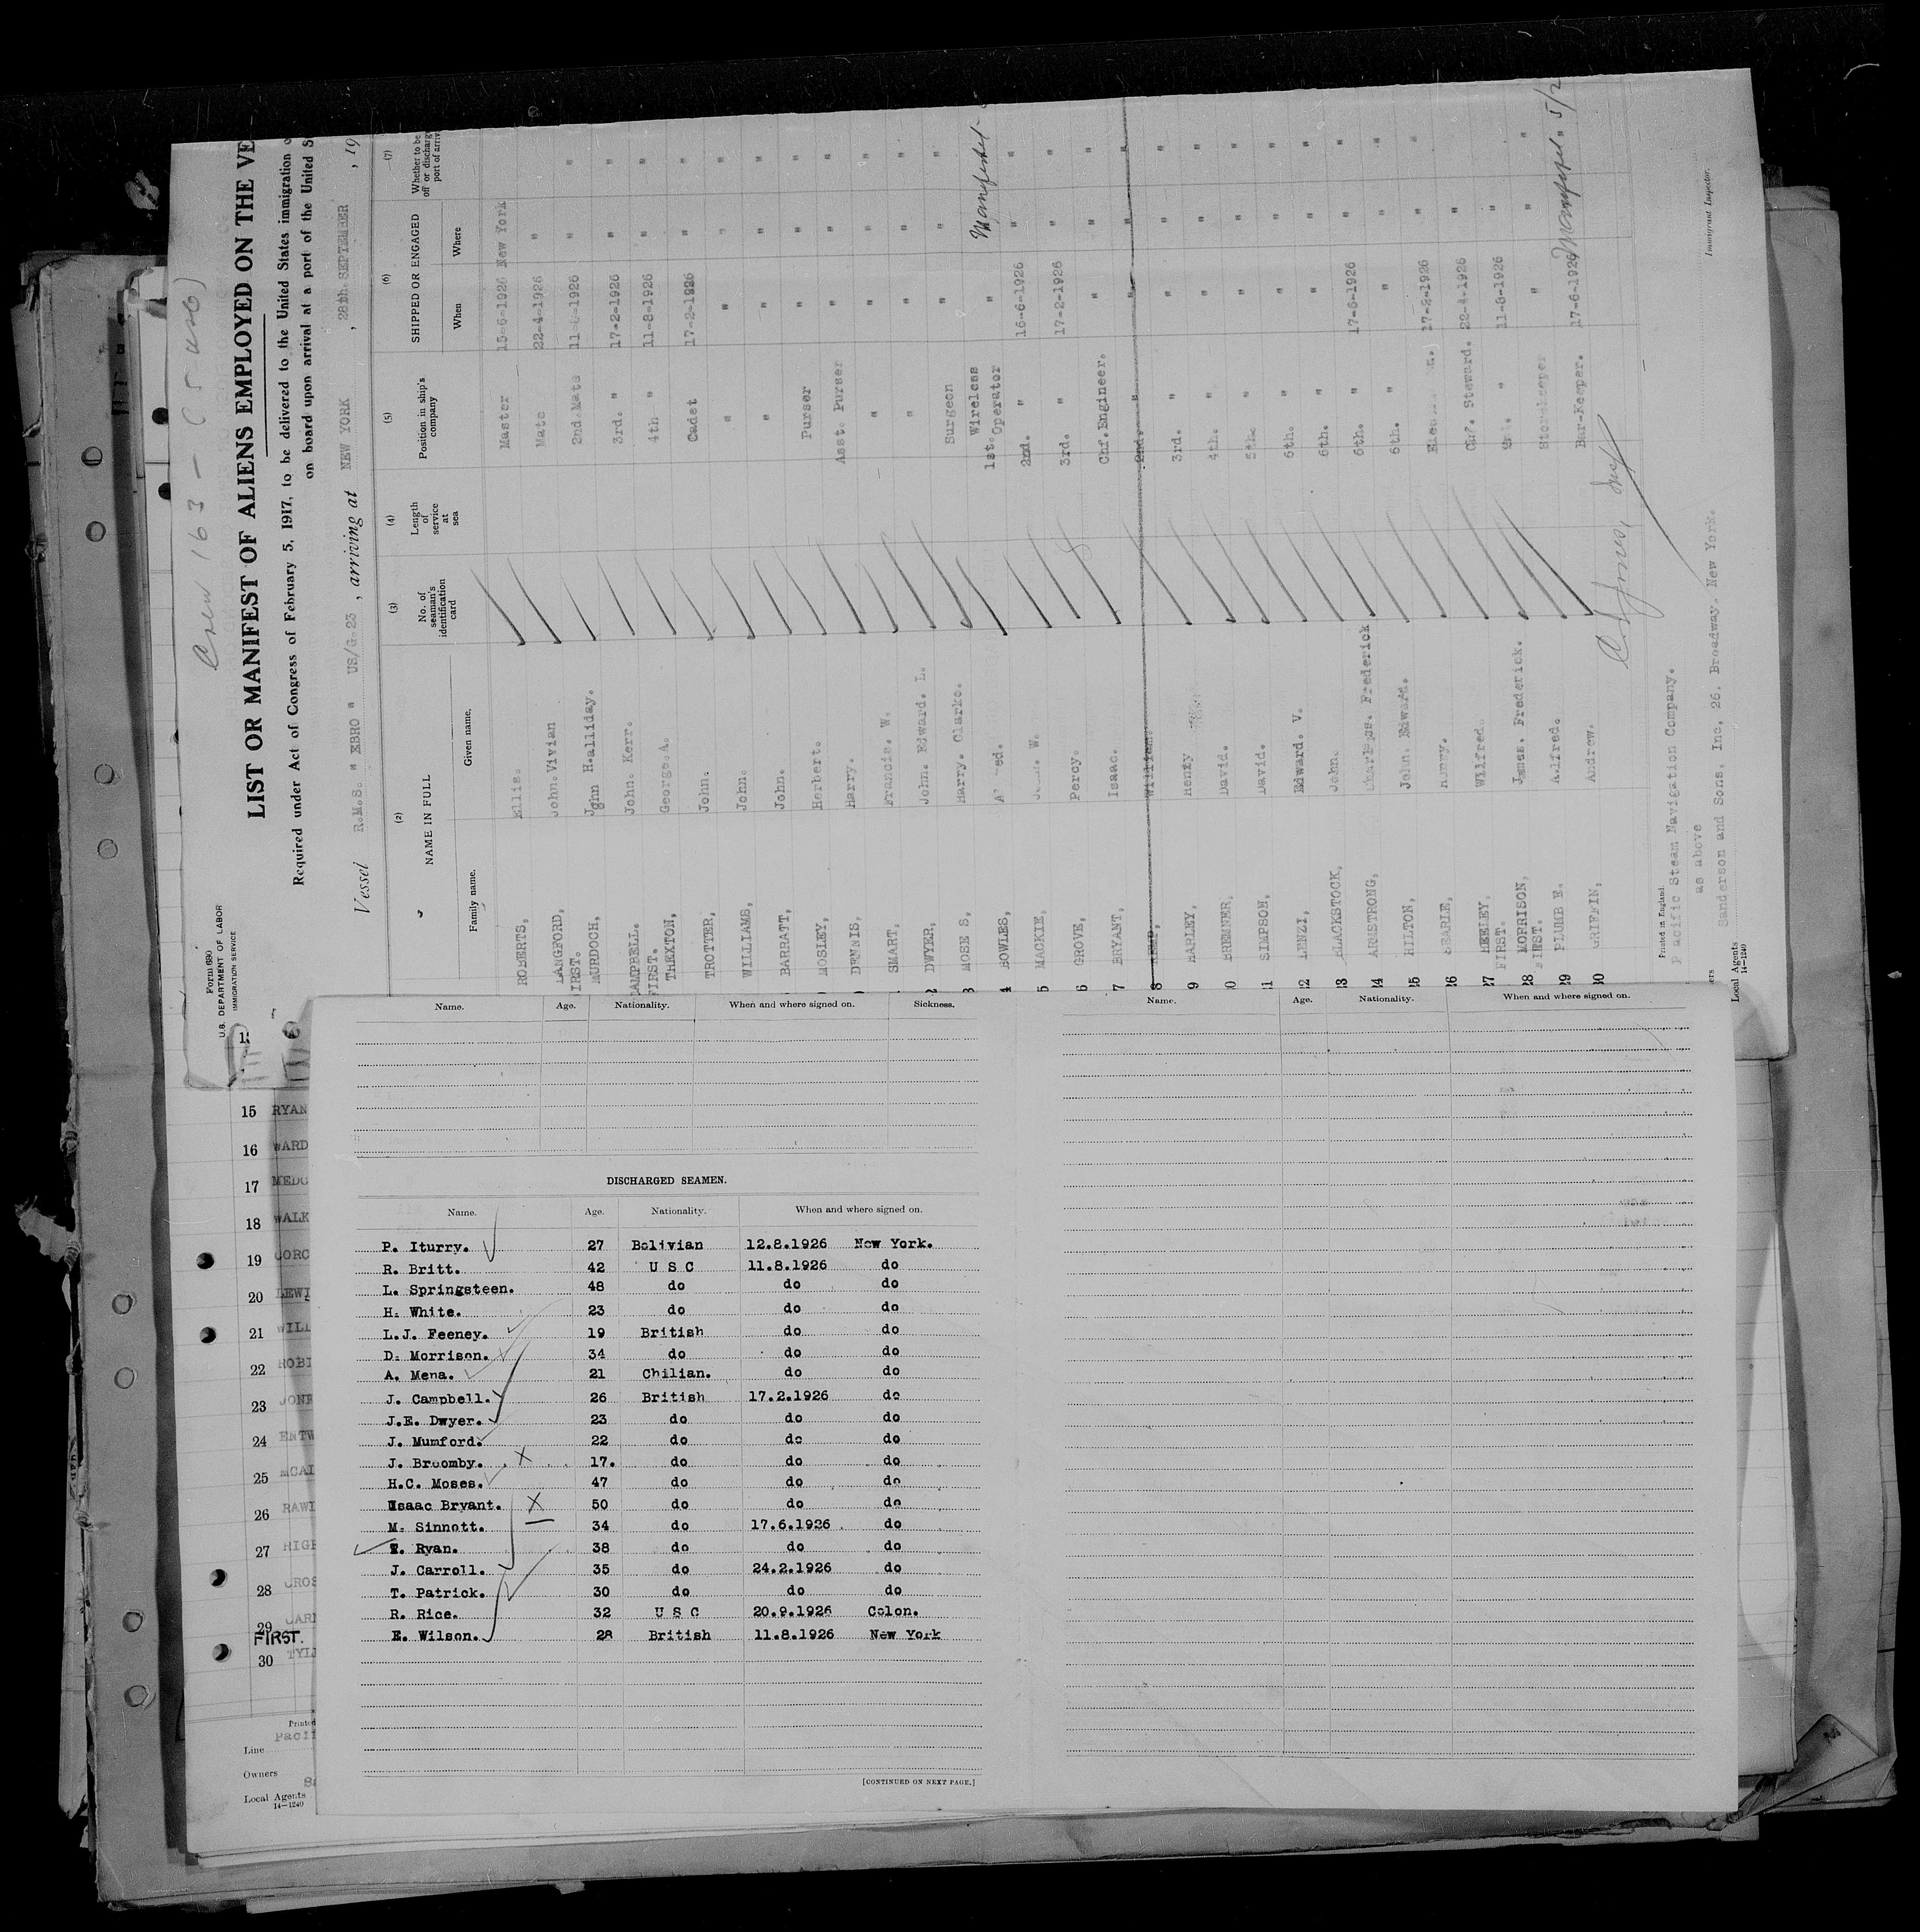 Crew 163 -
Form 680
U.S. DEPARTMENT OF LABOR
IMMIGRATION SERVICE
LIST OR MANIFEST OF ALIENS EMPLOYED ON THE VE
Required under Act of Congress of February 5, 1917, to be delivered to the United States immigration o
on board upon arrival at a port of the United S
Vessel R.M.S. " EBRO " US/G.23 , arriving at NEW YORK , 28th SEPTEMBER , 19
(2) (3) (4) (5) (6) (7)
NAME IN FULL No. of seaman's identification card Length of service at sea Position in ship's company SHIPPED OR ENGAGED Whether to be off or discharg port of arriv
Family name. Given name. When Where
ROBERTS, Ellis. Master 15-6-1926 New York
LANGFORD, John.Vivian Mate 22-4-1926 "
FIRST.
MURDOCH, John H.alliday. 2nd.Mate 1926 " "
CAMPBELL. John. Kerr. 3rd. " 17-2-1926 " "
FIRST.
THEXTON, George.A. 4th " 11-8-1926 " "
TROTTER, John. Cadet 17-2-1926 " "
WILLIAMS, John. " " " "
BARRATT, John. " " " "
MOSLEY, Herbert. Purser " " "
DENNIS, Harry. Asst. Purser " " "
SMART, Francis. W. " " " "
2 DWYER, John. Edward. L. " " " "
3 MOSE S, Harry. Clarke. Surgeon " "
4 BOWLES, 1st. Wireless Operator " Manifested
5 MACKIE, W. 2nd. " 16-6-1926 " "
6 GROVE, Percy. 3rd. " 17-2-1926 " "
7 BRYANT, Isaac. Chf.Engineer. " " "
8 William. 2nd. " " " "
9 HARLEY, Henry 3rd. " " " "
20 BREMNER, David. 4th. " " " "
21 SIMPSON, David. 5th. " " " "
22 LENZI, Edward. V. 6th. " " " "
23 BLACKSTOCK, John. 6th. " " " "
24 ARMSTRONG, Frederick 6th. " 17-6-1926 " "
25 HILTON, John. Edward. 6th. " " " "
26 SEARLE, Henry. 17-2-1926 " "
27 HEELEY, Wilfred. Chf. Steward. 22-4-1926 "
FIRST.
28 MORRISON, James. Frederick. " 11-8-1926 "
FIRST.
29 PLUMB E. Alfred. Storekeeper " " "
30 GRIFFIN, Andrew. Bar-Keeper. 17-6-1926 Manifested. 5/2
C. Jones,
Printed in England.
Pacific Steam Navigation Company.
as above
Local Agents Sanderson and Sons, Inc, 26. Broadway. New York.
14-1240
Immigrant Inspector.
15 RYAN
16 WARD
17 MEDC
18 WALK
19 CORC
20 LEWI
21 WILL
22 ROBI
23 JONE
24 ENTW
25 MCAL
26 RAWI
27 RIGB
28 CROS
29 CARN
FIRST.
30 TYL
Printed
Line Pacif
Owners
Local Agents
14-1240
Name. Age. Nationality. When and where signed on. Sickness.
Name. Age. Nationality. When and where signed on.
DISCHARGED SEAMEN.
Name. Age. Nationality. When and where signed on.
P. Iturry. 27 Bolivian 12.8.1926 New York.
R. Britt. 42 U S C 11.8.1926 do
L. Springsteen. 48 do do do
H. White. 23 do do do
L.J. Feeney. 19 British do do
D. Morrison. 34 do do do
A. Mena. 21 Chilian. do do
J. Campbell. 26 British 17.2.1926 do
J.E. Dwyer. 23 do do do
J. Mumford. 22 do do do
J. Broomby. X 17. do do do
H.C. Moses. 47 do do do
Isaac Bryant. X 50 do do do
M. Sinnott. 34 do 17.6.1926 do
T. Ryan. 38 do do do
J. Carroll. 35 do 24.2.1926 do
T. Patrick. 30 do do do
R. Rice. 32 U S C 20.9.1926 Colon.
E. Wilson. 28 British 11.8.1926 New York
[CONTINUED ON NEXT PAGE.]